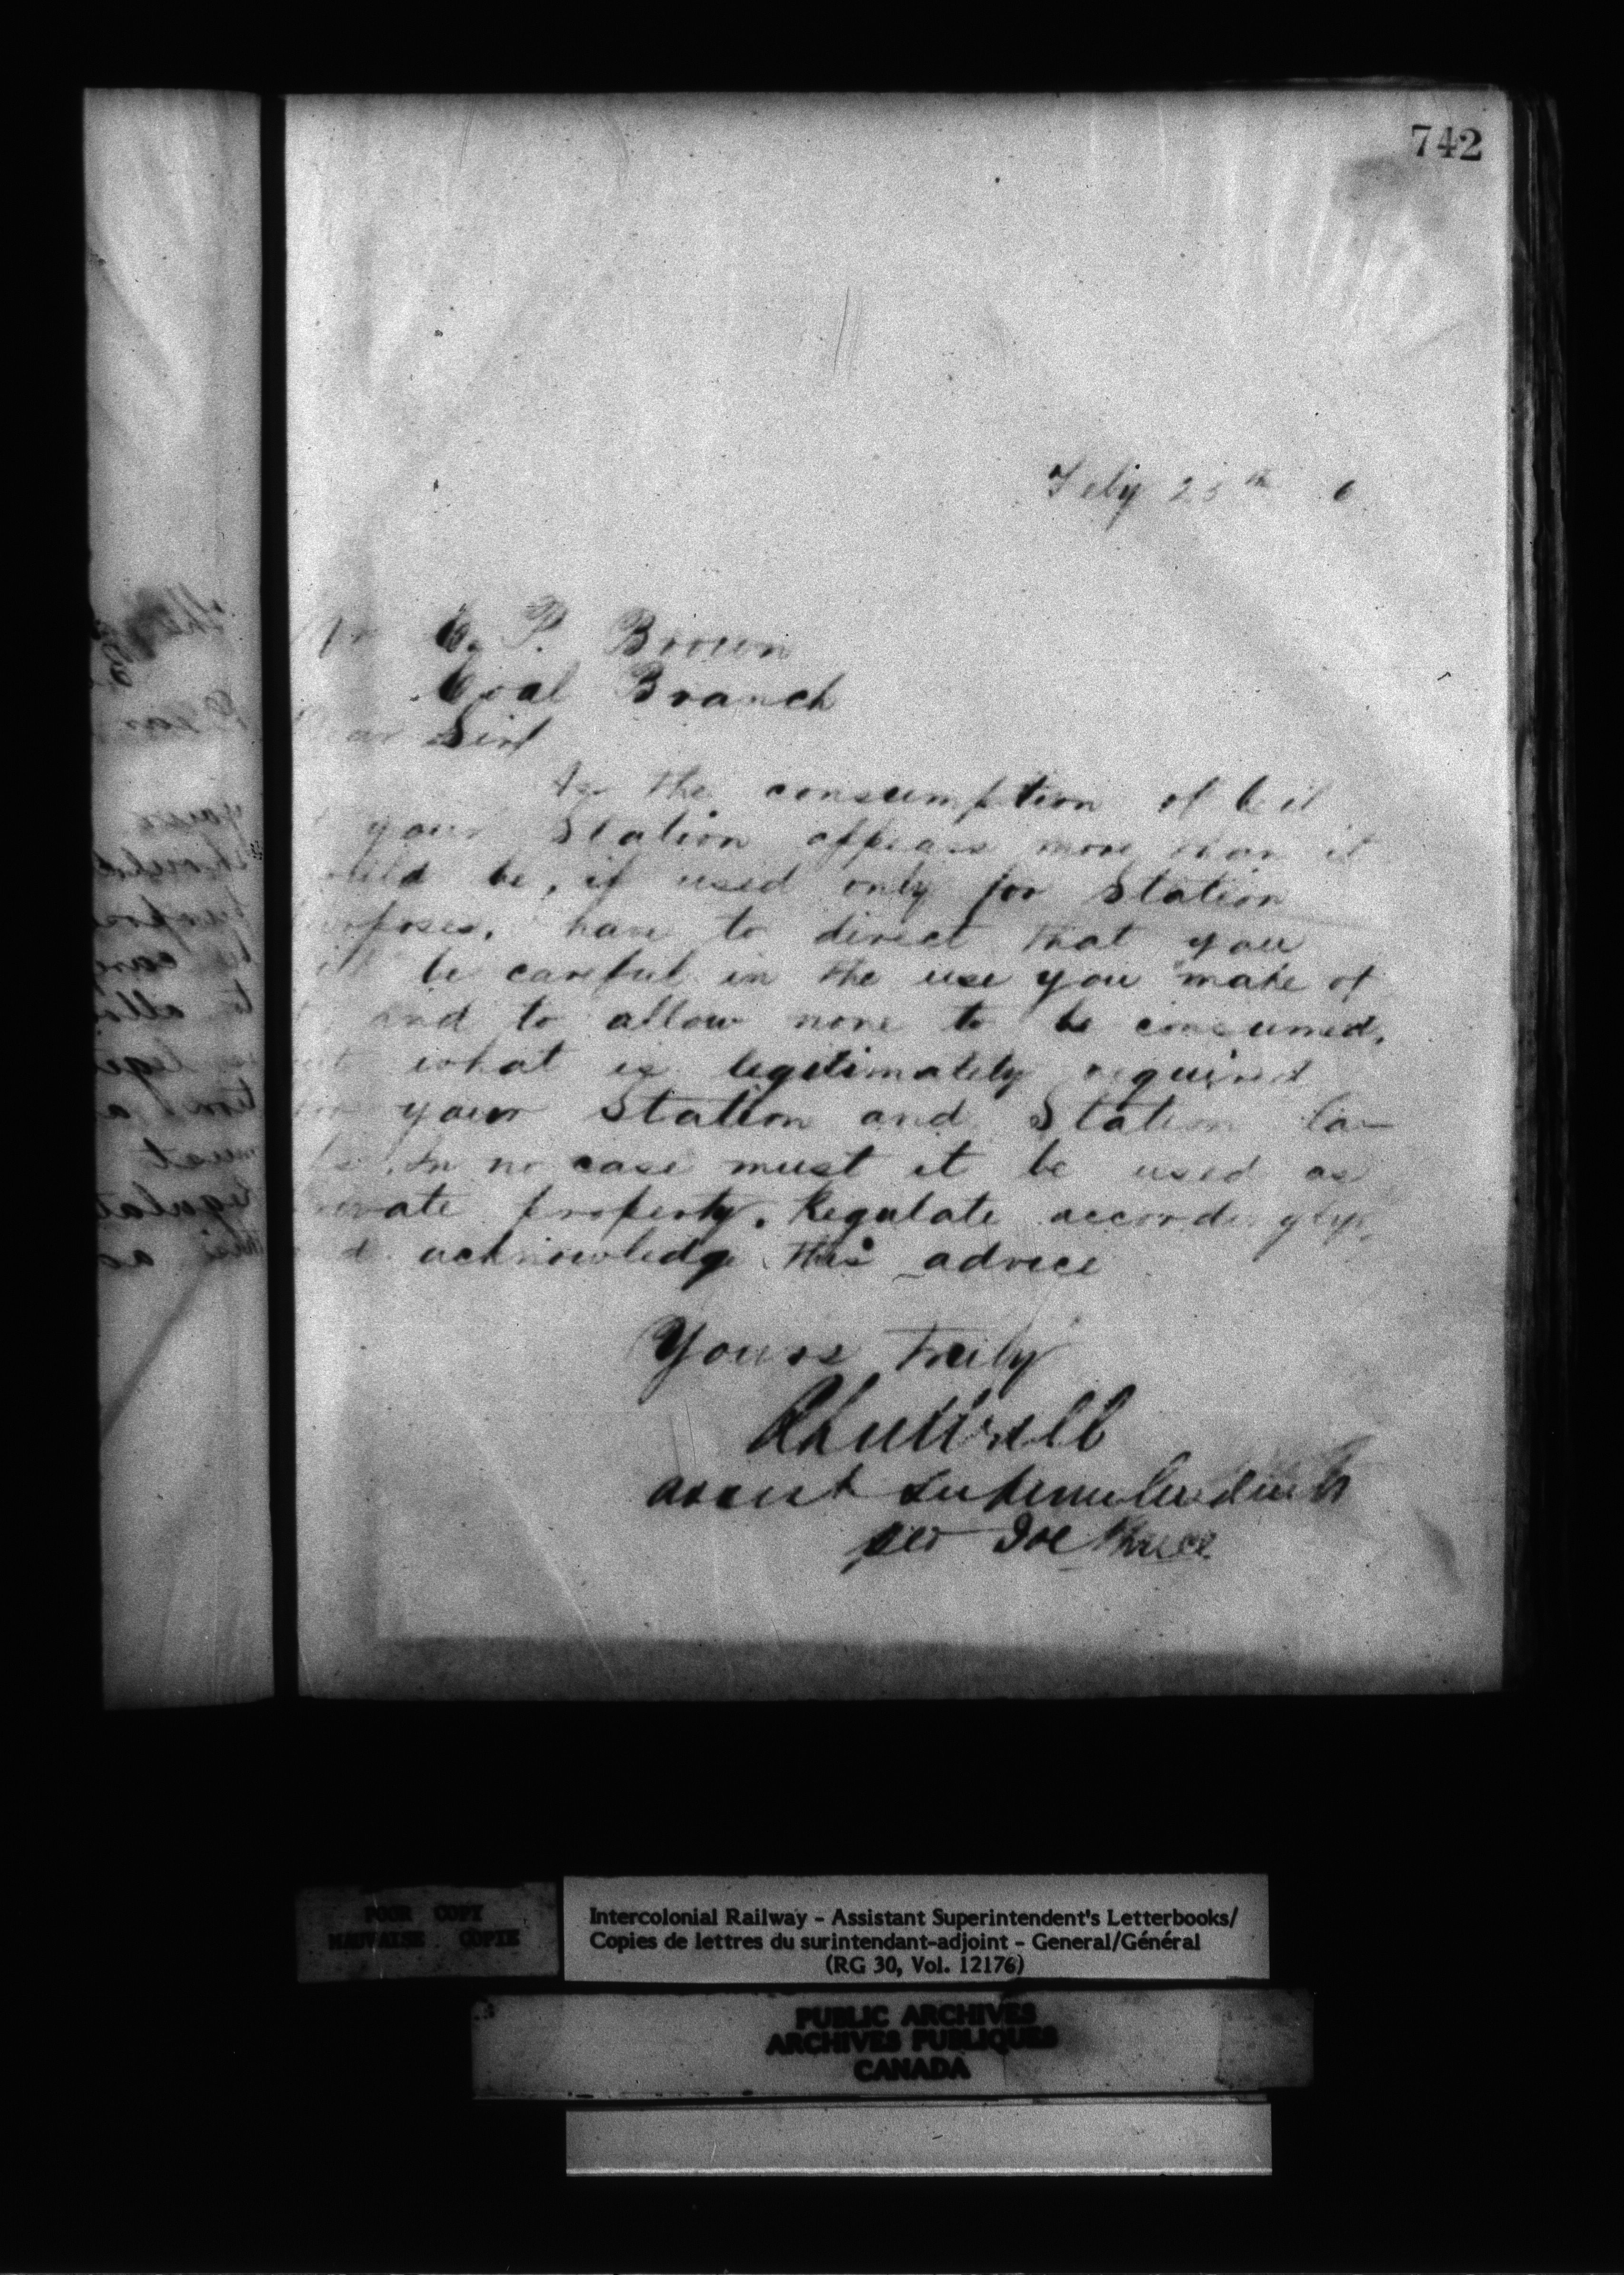 742
Feby 25th 6
Mr C. P. Brown
Coal Branch
Dear Sir
As the consumption of Oil
your Station appears more than it
should be, if used only for Station
purposes, have to direct that you
will be careful in the use you make of
and to allow none to be consumed,
but what is legitimately required
for your Station and Station La-
In no case must it be used as
private property. Regulate accordingly,
and acknowledge this advice
Yours Truly
Assist Superintendent
per
POOR COPY
MAUVAISE COPIE
Intercolonial Railway - Assistant Superintendent's Letterbooks/
Copies de lettres du surintendant-adjoint - General/Général
(RG 30, Vol. 12176)
PUBLIC ARCHIVES
ARCHIVES PUBLIQUES
CANADA